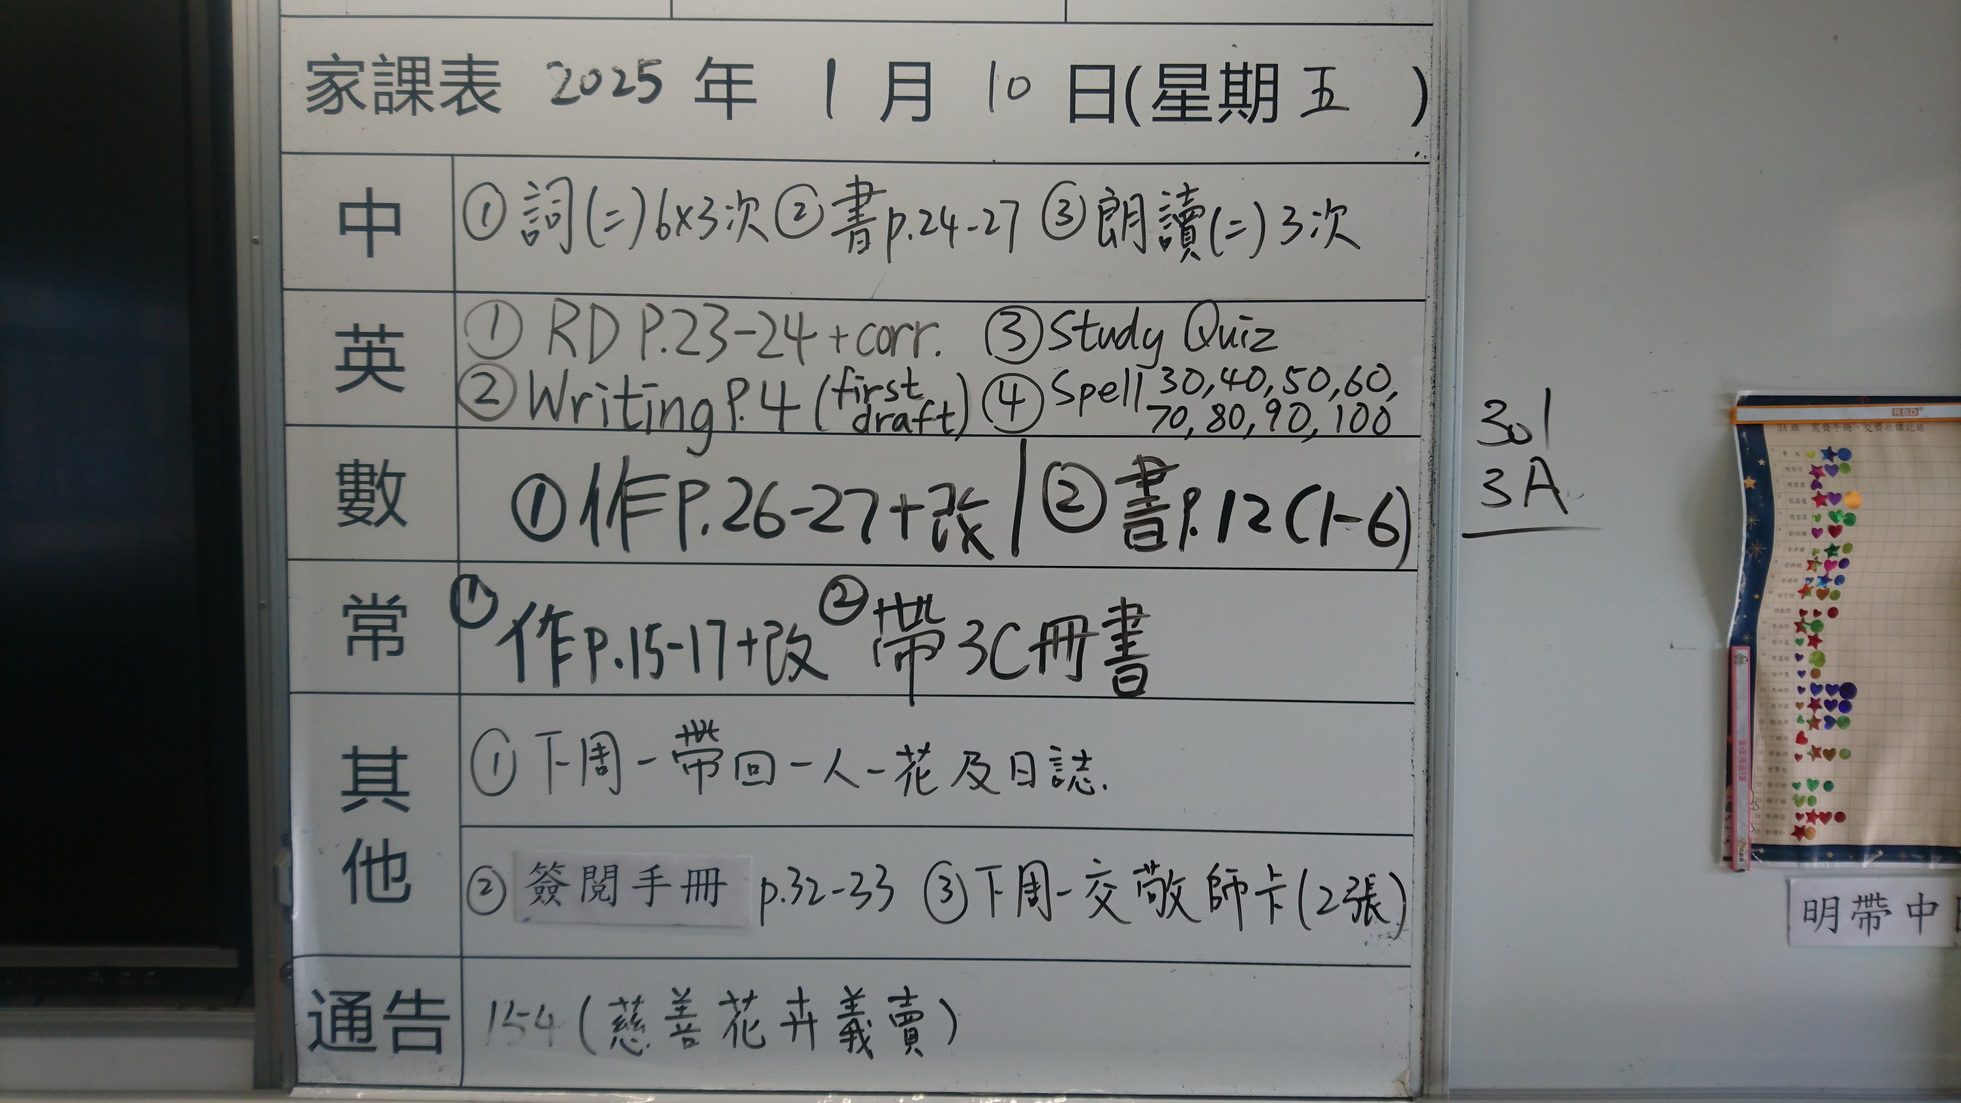 家課表 2025 年 1 月 10 日(星期五 )
中
①詞(二)6x3次②書p.24-27 ③朗讀(二)3次
英
① RD P.23-24+corr. ③Study Quiz
②Writing P.4 (first draft) ④Spell 30,40,50,60,
70,80,90,100
數
①作P.26-27+改|②書P.12(1-6)
常
①作p.15-17+改②帶3C冊書
其他
①下周一帶回一人一花及日誌.
②簽閱手冊 p.32-33 ③下周一交敬師卡(2張)
通告
154(慈善花卉義賣)
301
3A
明帶中